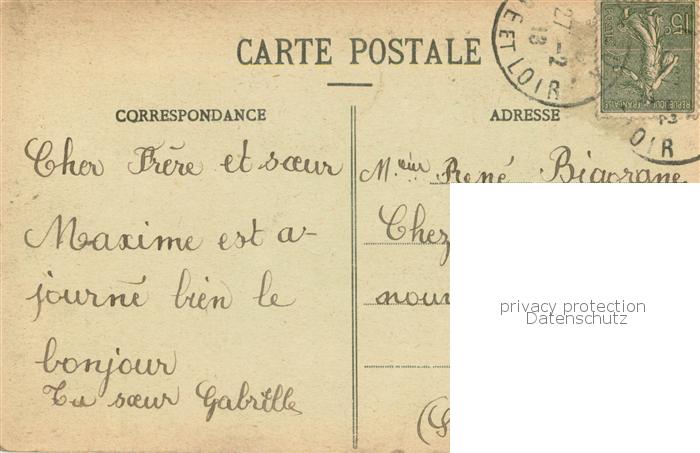 CARTE POSTALE
CORRESPONDANCE
Cher Frère et sœur
Maxime est a-
journé bien le
bonjour
Ta sœur Gabrille
ADRESSE
M.eur René Bigorgne
Chez
nour
(S
privacy protection
Datenschutz
27 -2
18
E ET LOIR
15c
REPUBLIQUE FRANÇAISE
OIR